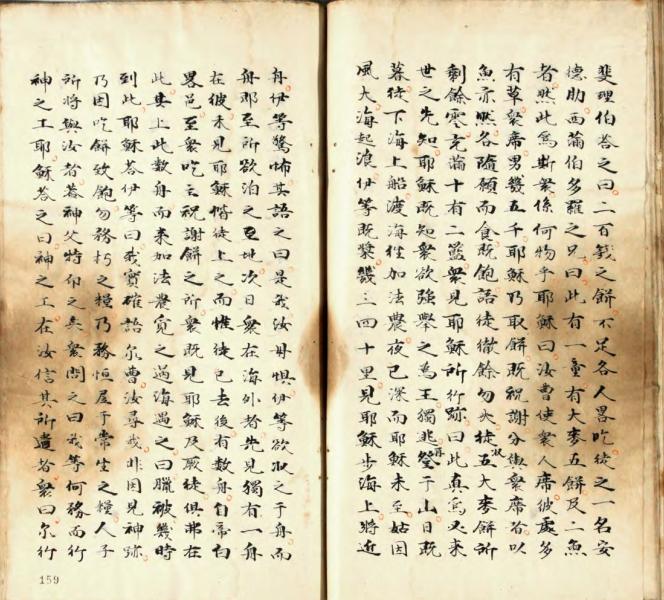 斐理伯荅之曰二百錢之餅不足各人畧吃徒之一名安
德肋西滿伯多羅之兄曰此有一童有大麥五餅及二魚
者然此爲斯衆係何物乎耶穌曰汝曹使衆人席彼處多
有草衆席男幾五千耶穌乃取餅既祝謝分與衆席者以
魚亦然各隨願而食既飽語徒撤餘勿失徒收五大麥餅所
剩餘零充滿十有二籃衆見耶穌所行跡曰此真爲必來
世之先知耶穌既知衆欲強舉之為王獨逃登于山日既
暮徒下海上船渡海徃加法農夜已深而耶穌未至姑因
風大海起浪伊等既槳幾三四十里見耶穌步海上將近
舟伊等驚怖其語之曰是我汝毋懼伊等欲収之于舟而
舟即至所欲泊之  地次日衆在海外者先見獨有一舟
在彼未見耶穌偕徒上之而惟徒已去後有數舟自帝白
畧邑至衆吃主祝謝餅之所衆既見耶穌及厥徒俱弗在
此  上此數舟而来加法農覓之過海遇之曰臘被幾時
到此耶穌荅伊等曰我實確語尔曹汝尋我非因見神跡
乃因吃餅致飽勿務朽之糧乃務恒㞐于常生之糧人子
所將與汝者葢神父特印之矣衆問之曰我等何務而行
神之工耶穌荅之曰神之工在汝信其所遣者衆曰尔行
159